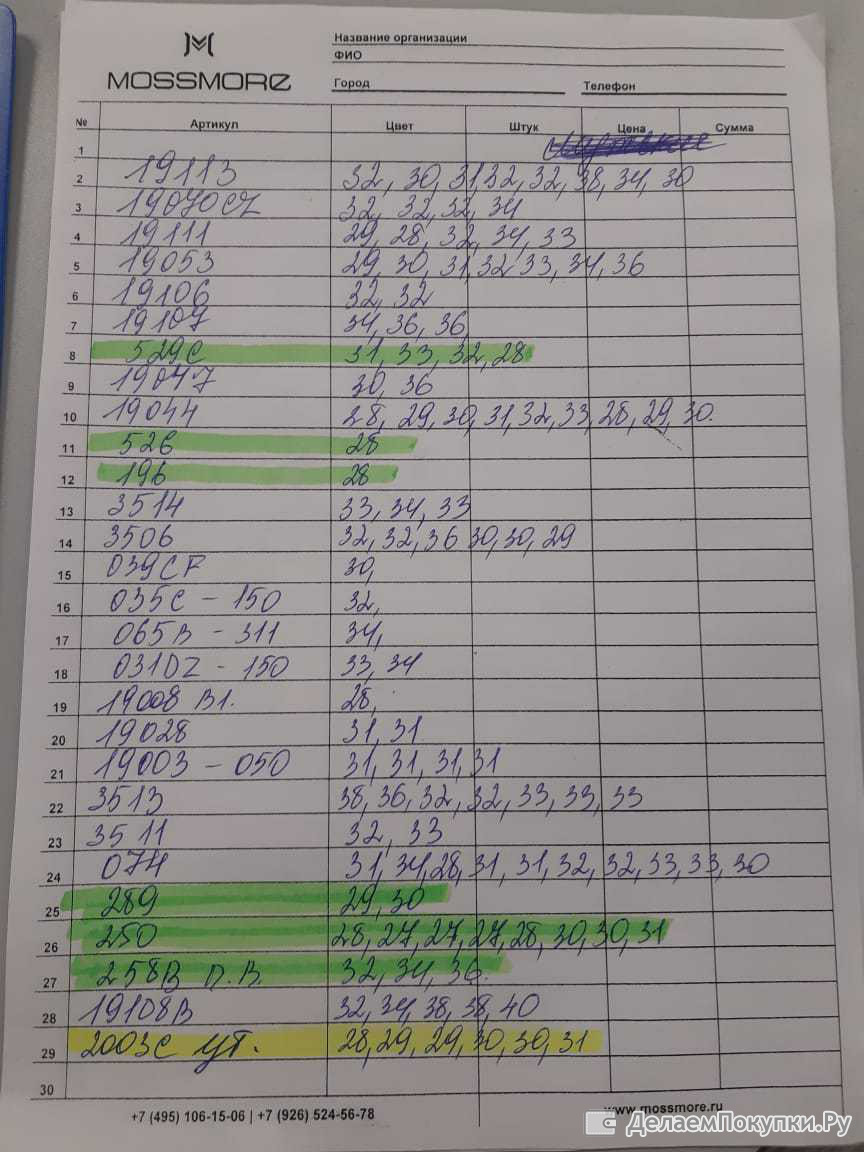 MOSSMORE
Название организации
ФИО
Город Телефон
№ Артикул Цвет Штук Цена Сумма
1
2 19113 32, 30, 31, 32, 32, 38, 34, 30
3 19070CZ 32, 32, 32, 34
4 19111 29, 28, 32, 34, 33
5 19053 29, 30, 31, 32 33, 34, 36
6 19106 32, 32
7 19107 34, 36, 36
8 529C 31, 33, 32, 28
9 19047 30, 36
10 19044 28, 29, 30, 31, 32, 33, 28, 29, 30.
11 526 28
12 196 28
13 3514 33, 34, 33
14 3506 32, 32, 36 30, 30, 29
15 039CF 30,
16 035C - 150 32,
17 065B - 311 34,
18 031DZ - 150 33, 34
19 19008 В1. 28,
20 19028 31, 31
21 19003 - 050 31, 31, 31, 31
22 3513 38, 36, 32, 32, 33, 33, 33
23 3511 32, 33
24 074 31, 34, 28, 31, 31, 32, 32, 33, 33, 30
25 289 29, 30
26 250 28, 27, 27, 27, 28, 30, 30, 31
27 258В п.в. 32, 34, 36.
28 19108В 32, 34, 38, 38, 40
29 2003C ут. 28, 29, 29, 30, 30, 31
30
+7 (495) 106-15-06 | +7 (926) 524-56-78 www.mossmore.ru
ДелаемПокупки.Ру